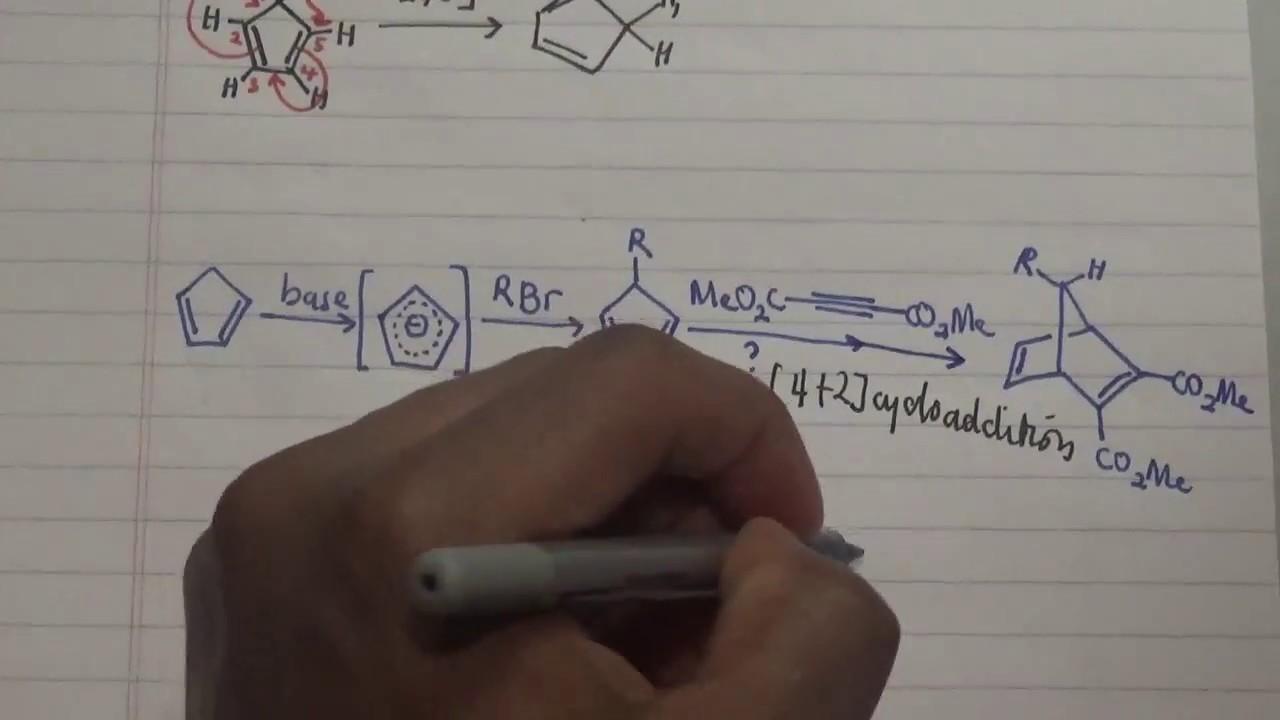 H 2 5 H
H 3 4 H
H
R
base
RBr
MeO2C
CO2Me
R H
?
[4+2] cycloaddition
CO2Me
CO2Me